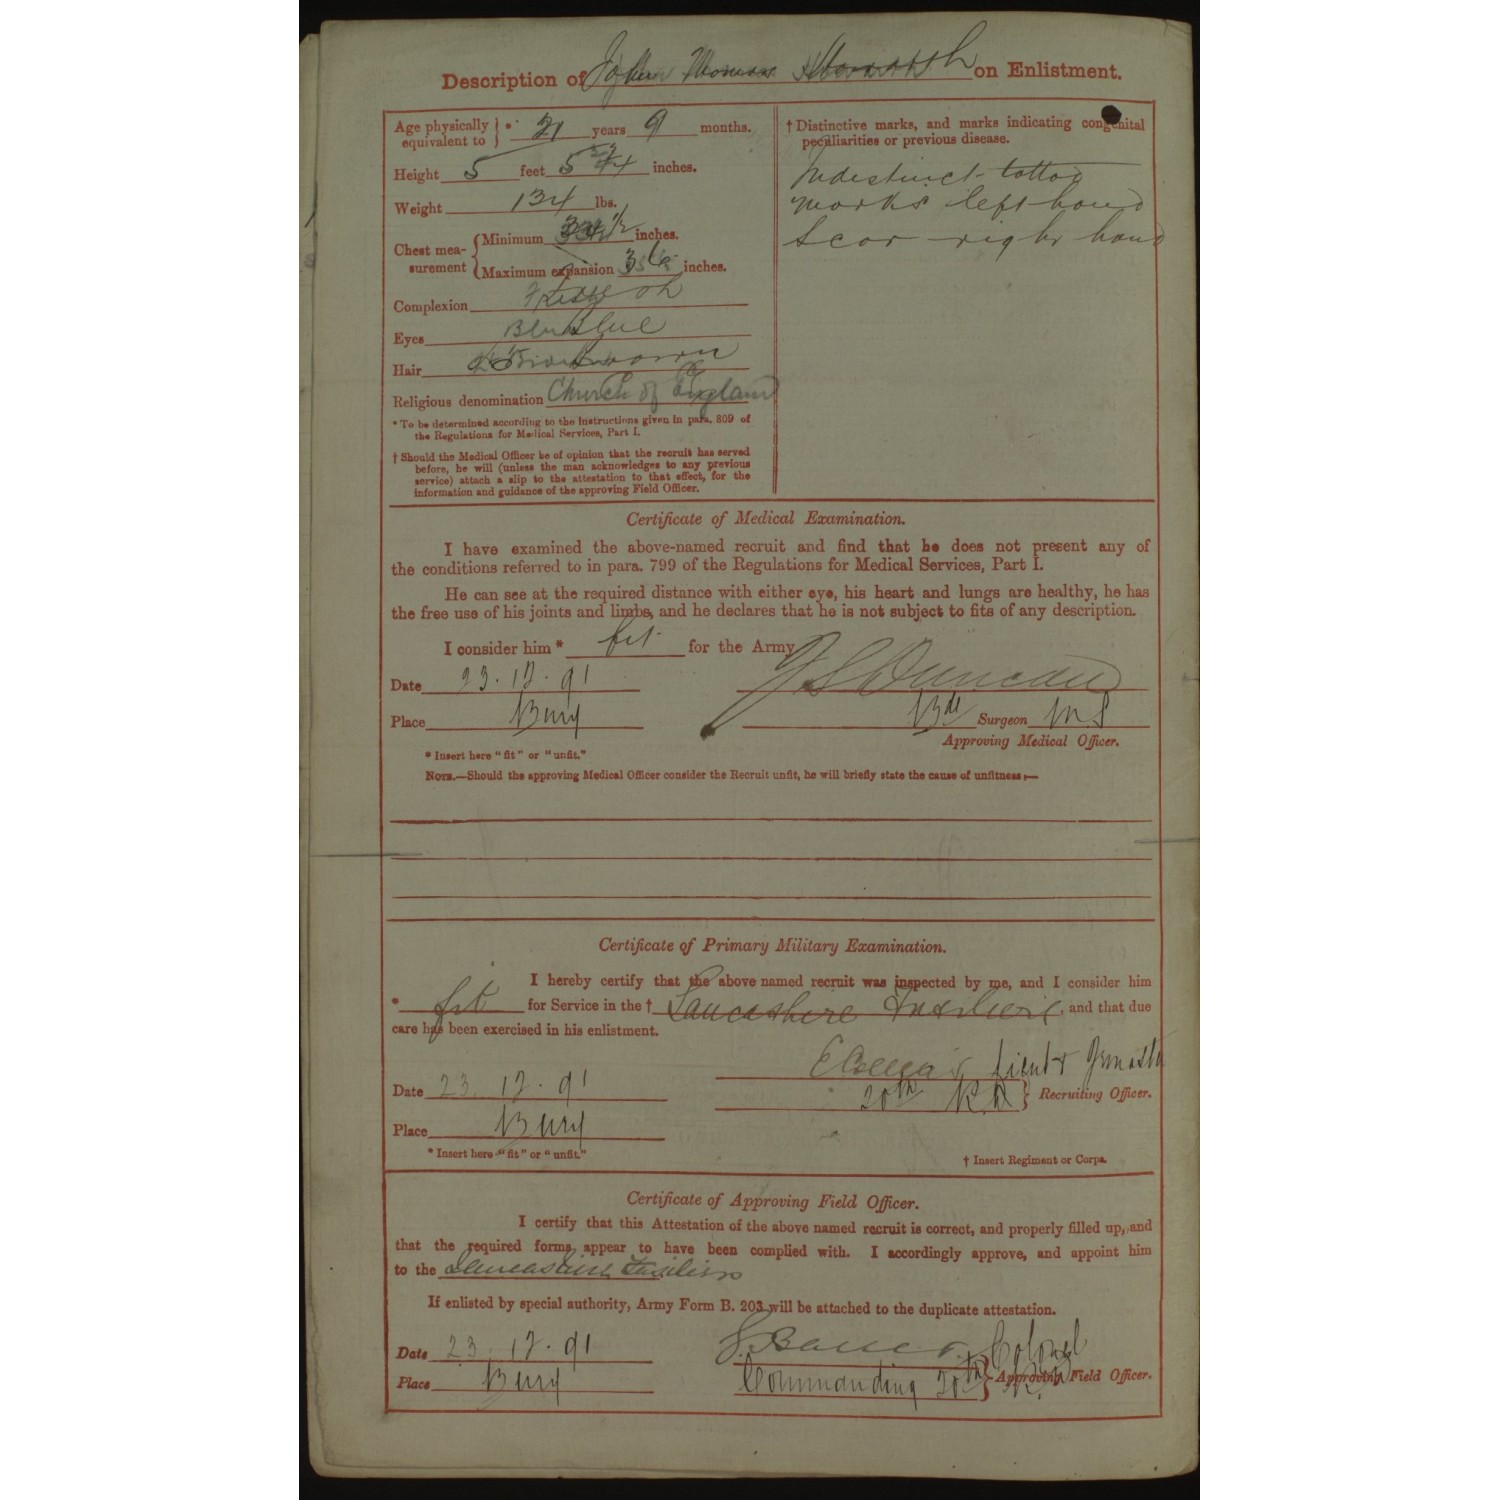 Description of John Thomas on Enlistment.
Age physically equivalent to } * 21 years 9 months.
Height 5 feet 5 3/4 inches.
Weight 134 lbs.
Chest measurement { Minimum 1/2 inches.
Maximum expansion inches.
Complexion Fresh
Eyes Blue
Hair Brown
Religious denomination Church of England
* To be determined according to the instructions given in para. 809 of
the Regulations for Medical Services, Part I.
† Should the Medical Officer be of opinion that the recruit has served
before, he will (unless the man acknowledges to any previous
service) attach a slip to the attestation to that effect, for the
information and guidance of the approving Field Officer.
† Distinctive marks, and marks indicating congenital
peculiarities or previous disease.
Indistinct tattoo
marks left hand
Scar right hand
Certificate of Medical Examination.
I have examined the above-named recruit and find that he does not present any of
the conditions referred to in para. 799 of the Regulations for Medical Services, Part I.
He can see at the required distance with either eye, his heart and lungs are healthy, he has
the free use of his joints and limbs, and he declares that he is not subject to fits of any description.
I consider him * fit for the Army
Date 23.12.91 Duncan
Place Bury Bde Surgeon M S
Approving Medical Officer.
* Insert here "fit" or "unfit."
NOTE.—Should the approving Medical Officer consider the Recruit unfit, he will briefly state the cause of unfitness:—
Certificate of Primary Military Examination.
I hereby certify that the above named recruit was inspected by me, and I consider him
* fit for Service in the † Lancashire Fusiliers, and that due
care has been exercised in his enlistment.
Lieut & Qrmaster
Date 23.12.91 20th R.D. } Recruiting Officer.
Place Bury
* Insert here "fit" or "unfit."
† Insert Regiment or Corps.
Certificate of Approving Field Officer.
I certify that this Attestation of the above named recruit is correct, and properly filled up, and
that the required forms appear to have been complied with. I accordingly approve, and appoint him
to the Lancashire Fusiliers
If enlisted by special authority, Army Form B. 203 will be attached to the duplicate attestation.
Date 23.12.91 Colonel
Place Bury Commanding 20th R.D. } Approving Field Officer.